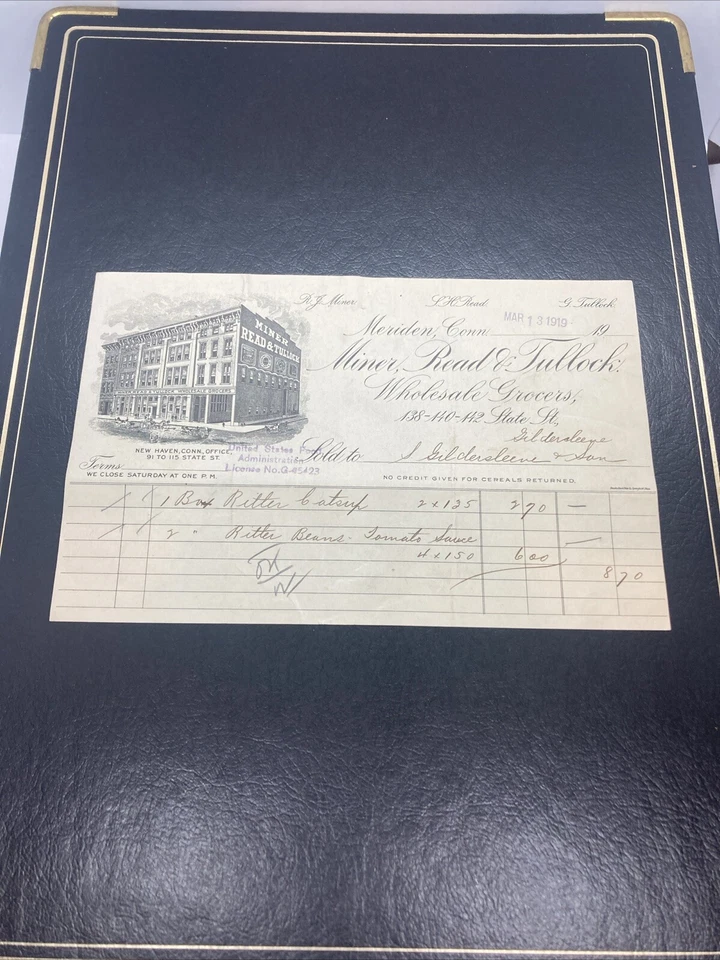 R. J. Miner. L. H. Read. G. Tulloch.
MAR 13 1919
Meriden, Conn. 19
MINER
READ & TULLOCK
Miner, Read & Tullock,
Wholesale Grocers,
138-140-142 State St,
Gildersleeve
NEW HAVEN, CONN, OFFICE,
91 TO 115 STATE ST.
United States Food
Administration
License No. G-45423
Sold to S Gildersleeve & Son
Terms
WE CLOSE SATURDAY AT ONE P.M.
NO CREDIT GIVEN FOR CEREALS RETURNED.
1 Box Ritter Catsup 2 x 135 270 —
2 " Ritter Beans - Tomato Sauce —
4 x 150 600
8 70